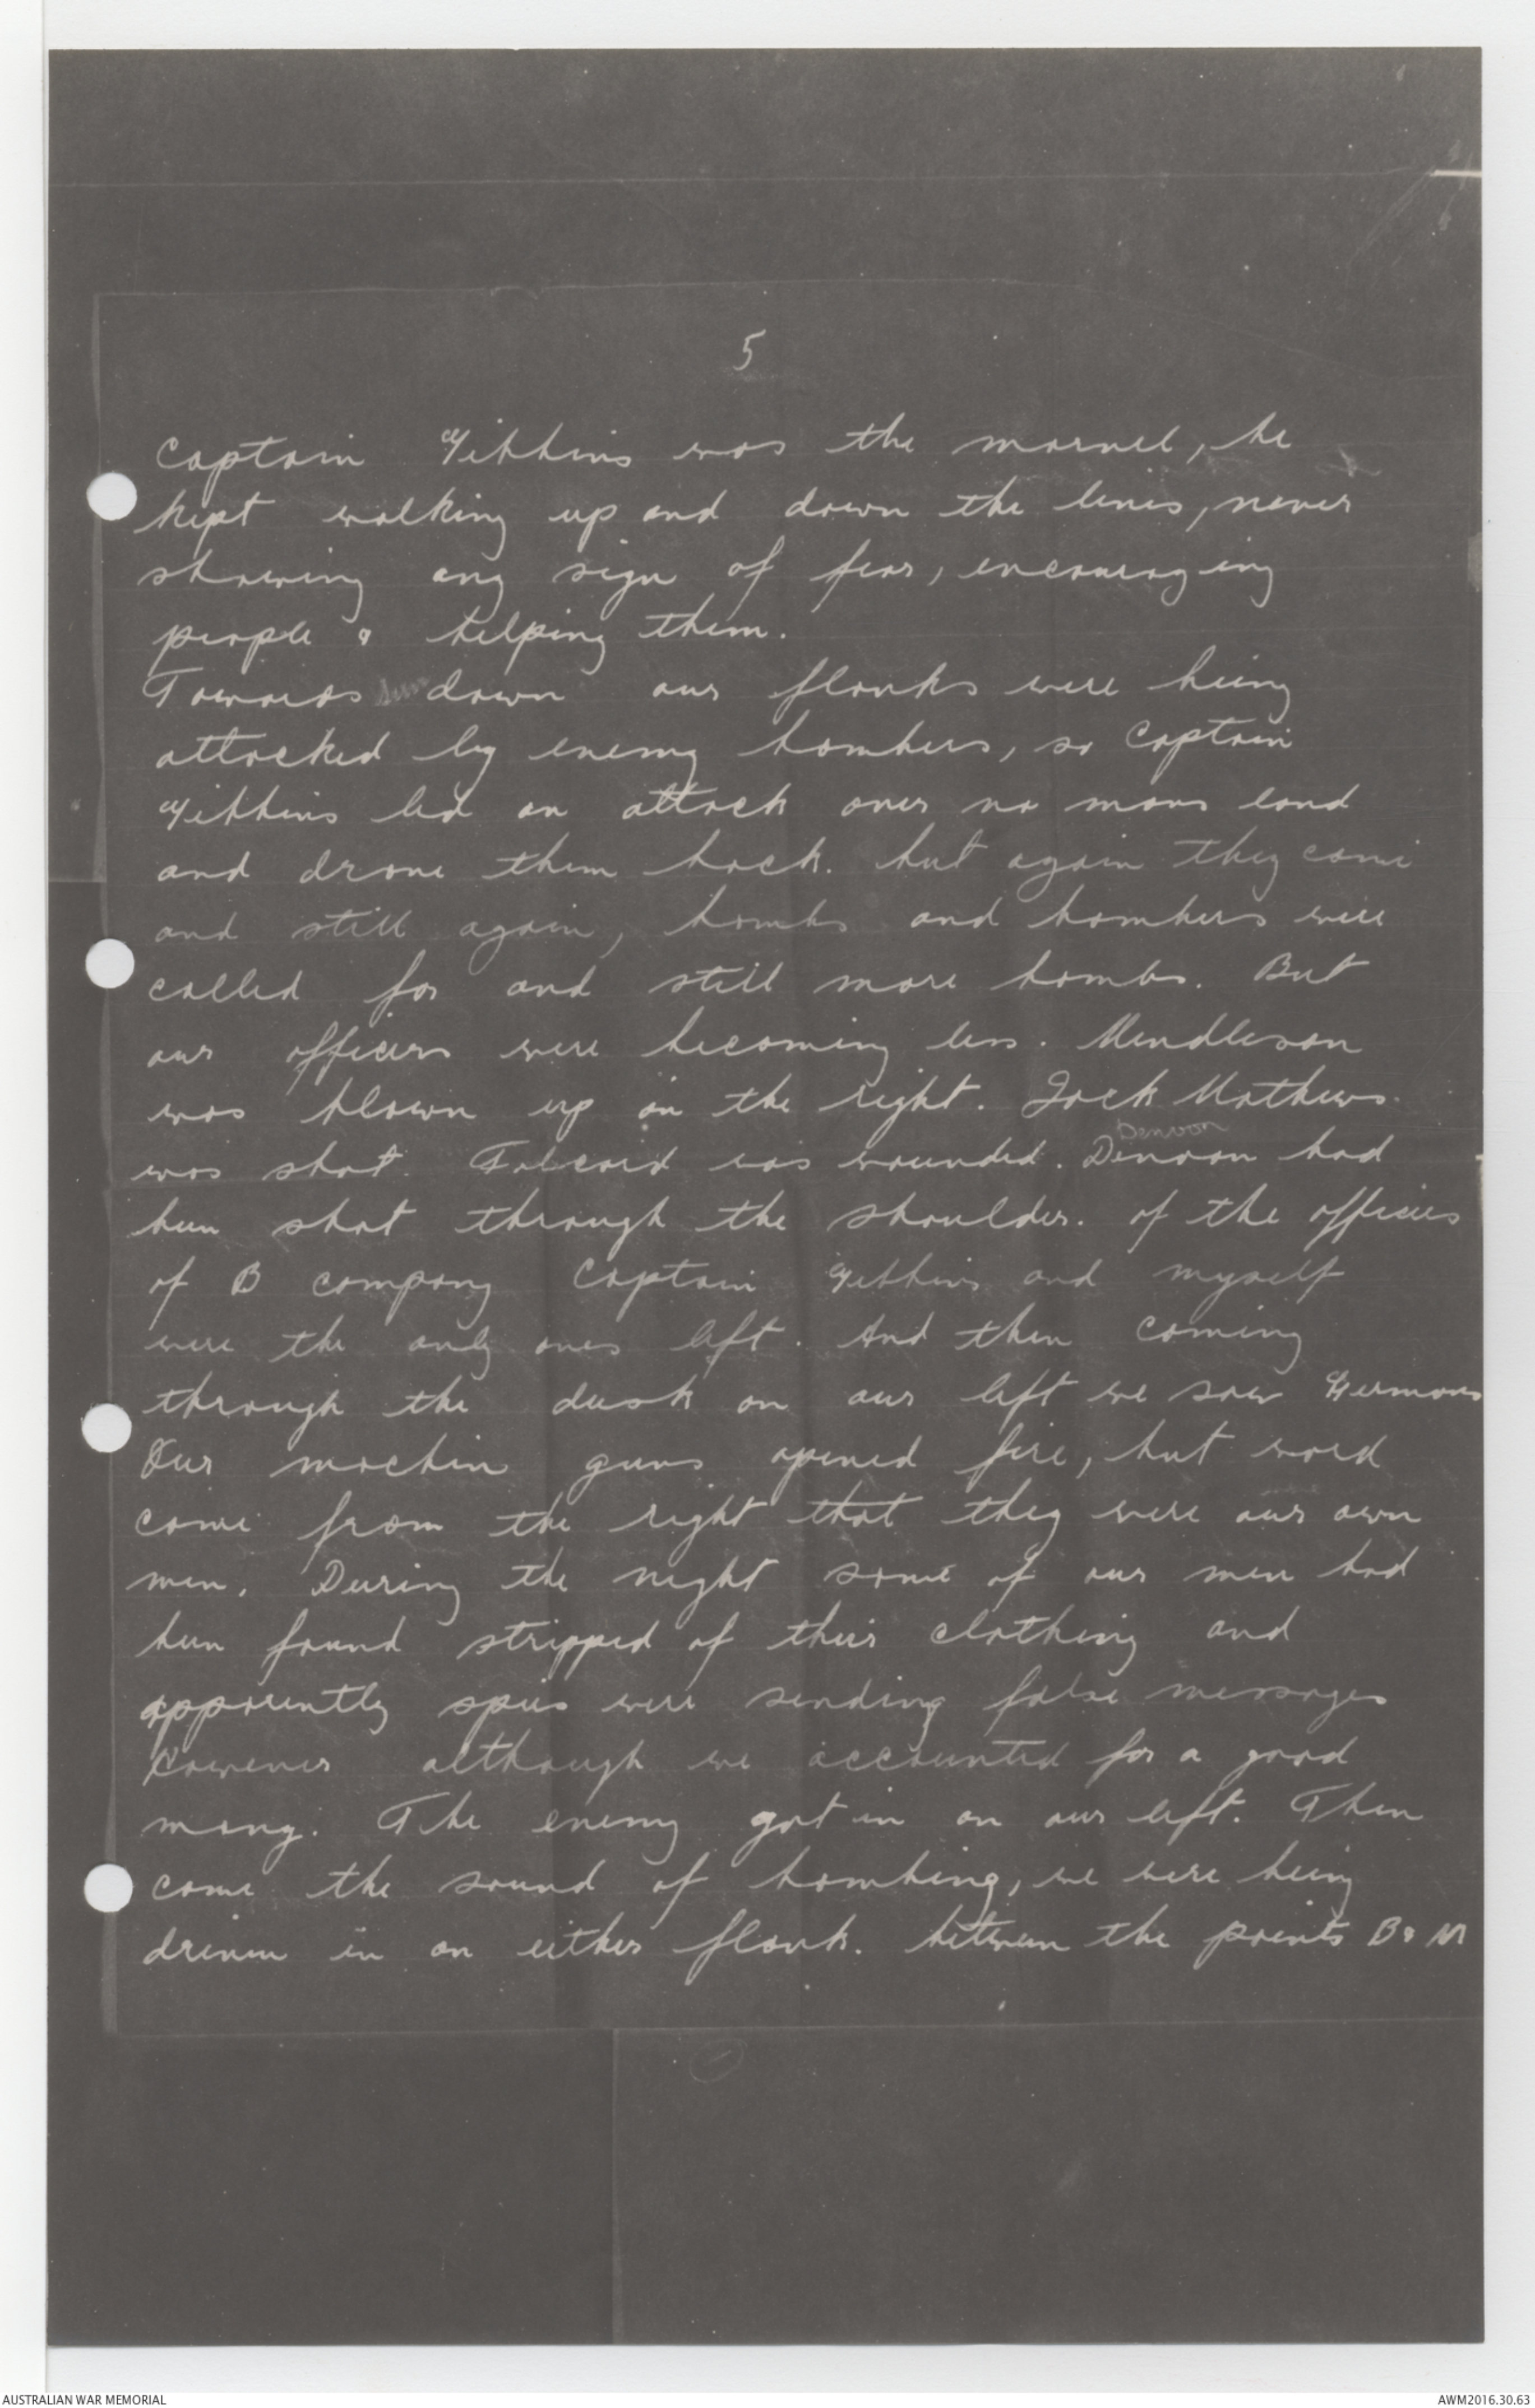 5
Captain Gibbins was the marvel, he
kept walking up and down the lines, never
showing any sign of fear, encouraging
people & helping them.
Towards dawn our flanks were being
attacked by enemy bombers, so Captain
Gibbins led an attack over no mans land
and drove them back. but again they came
and still again, bombs and bombers were
called for and still more bombs. But
our officers were becoming less. Mendleson
was blown up on the right. Jack Mathews.
Denoon
was shot. was wounded. Denoon had
been shot through the shoulder. of the officers
of B company Captain Gibbins and myself
were the only ones left. And then coming
through the dusk on our left we saw Germans
Our machin guns opened fire, but word
came from the right that they were our own
men. During the night some of our men had
been found stripped of their clothing and
apparently spies were sending false messages
However although we accounted for a good
many. The enemy got in on our left. Then
came the sound of bombing, we were being
driven in on either flank. between the points B & M
AUSTRALIAN WAR MEMORIAL
AWM2016.30.63